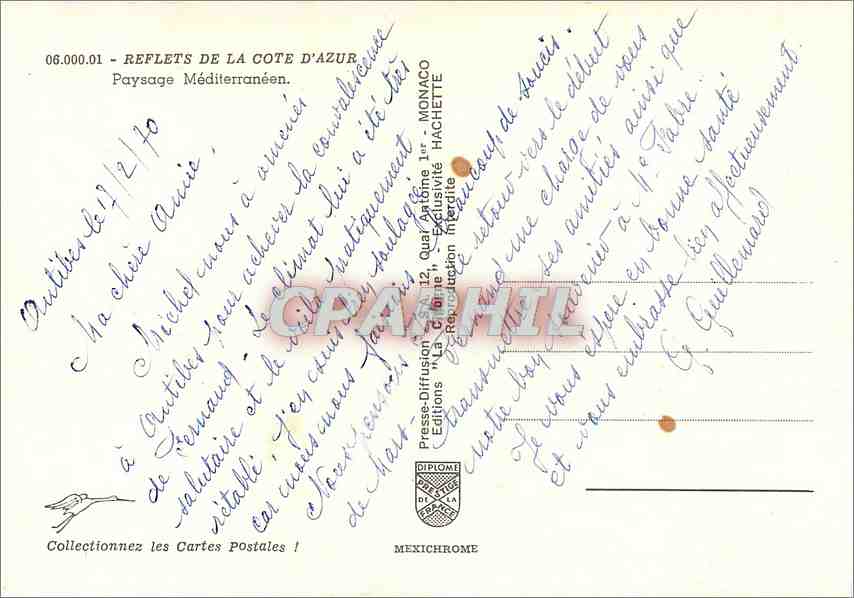 06.000.01 - REFLETS DE LA COTE D'AZUR
Paysage Méditerranéen.
Antibes le 17/2/70
Ma chère Amie,
Michel nous a amenés
à Antibes pour achever la convalescence
de Fernand - Le climat lui a été très
salutaire et le voilà pratiquement
rétabli. J'en suis bien soulagée
car nous nous faisions beaucoup de soucis.
Nous pensons le retour vers le début
de Mars. Fernand me charge de vous
transmettre ses amitiés ainsi que
notre bon souvenir à Me Fabre.
Je vous espère en bonne santé
et vous embrasse bien affectueusement.
G. Guillemard
Presse-Diffusion - S.A. 12, Quai Antoine 1er - MONACO
Editions "La Cigogne" - Exclusivité HACHETTE
Reproduction interdite
CPAPHIL
DIPLOME
PRESTIGE
DE LA
FRANCE
Collectionnez les Cartes Postales !
MEXICHROME